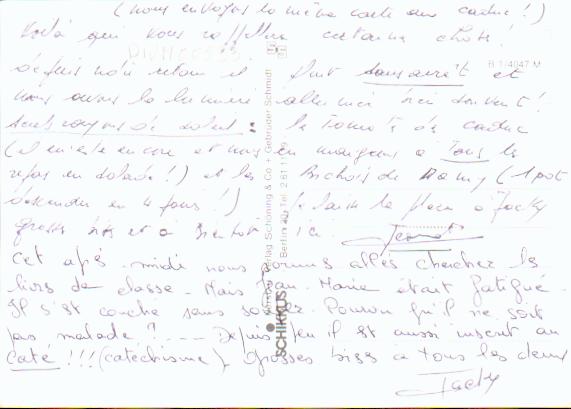 (nous envoyons la même carte aux cadine !)
Voilà qui vous rappellera certaines choses !
depuis notre retour il pleut sans arrêt et
nous avons la lumière allumée bien souvent !
Seuls rayons de soleil : la tomate de cadine
(il en reste encore et nous en mangeons à tous les
repas en salade !) et les Bichois de Mamy (1 pot
descendu en 4 jours !) Je laisse la place à Jacky
grosses bises et à bientôt ici.
Cet après-midi nous sommes allés chercher les
livres de classe. Mais Jean-Marie était fatigué.
Il s'est couché sans souper. Pourvu qu'il ne soit
pas malade ?.... Depuis peu il est aussi inscrit au
Caté !!! (catéchisme). Grosses bises à tous les deux
Jacky
B 1/4047 M
Verlag Schöning & Co + Gebrüder Schmidt
Berlin 20 Tel. 2 61 11 09
SCHIKKUS